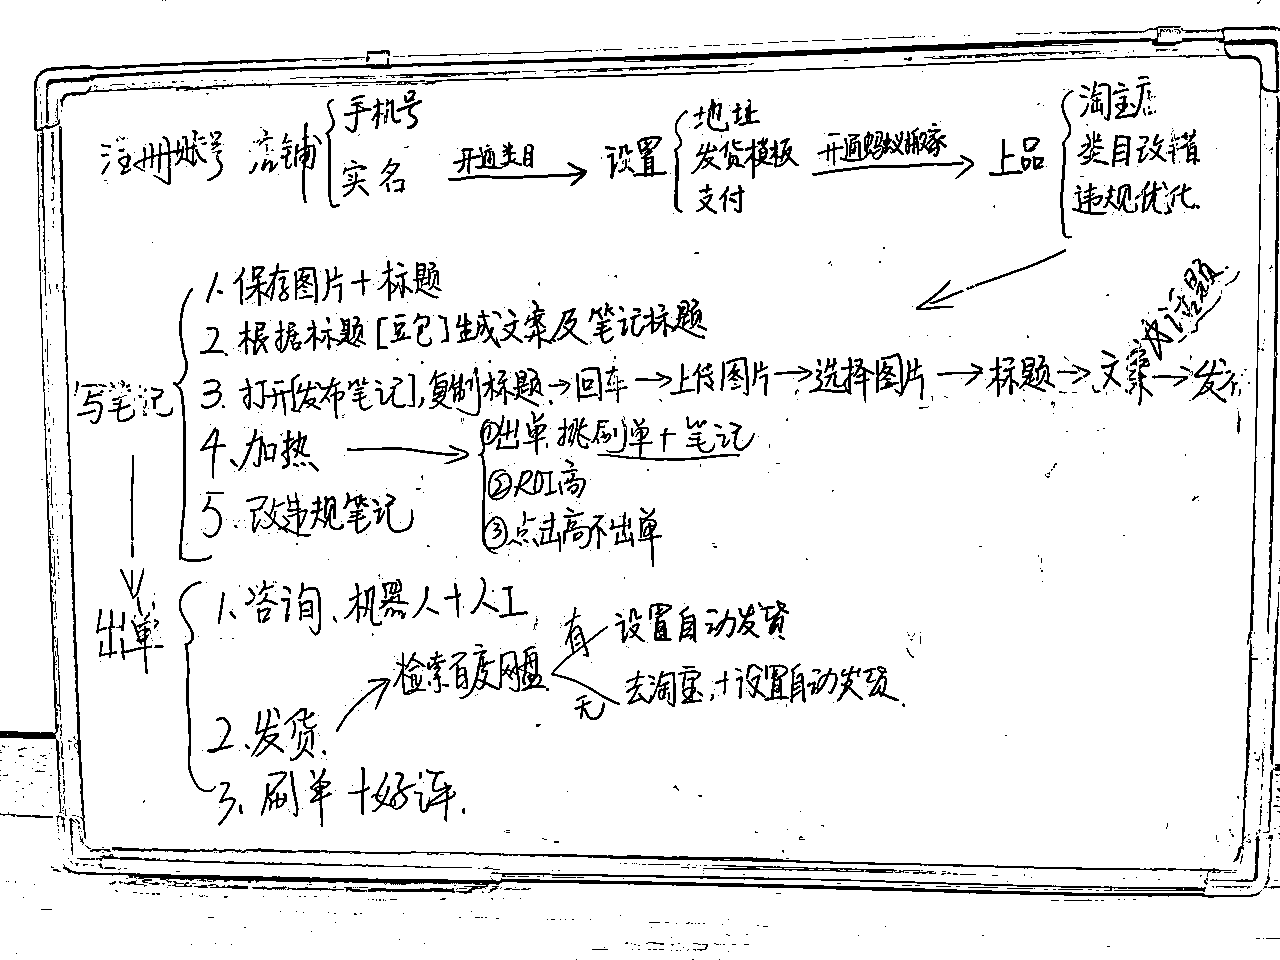 注册账号 店铺 { 手机号 实名
开通类目 →
设置 { 地址 发货模板 支付
开通蚂蚁搬家 →
上品 { 淘宝店 类目改错 违规优化
写笔记
1. 保存图片+标题
2. 根据标题[豆包]生成文案及笔记标题
3. 打开[发布笔记],复制标题→回车→上传图片→选择图片→标题→文案→发
话题
4、加热 → ①出单 挑刷单+笔记
②ROI高
③点击高不出单
5. 改违规笔记
出单
1、咨询、机器人+人工
2、发货. 检索百度网盘
有 设置自动发货
无 去淘宝,+设置自动发货
3、刷单+好评.